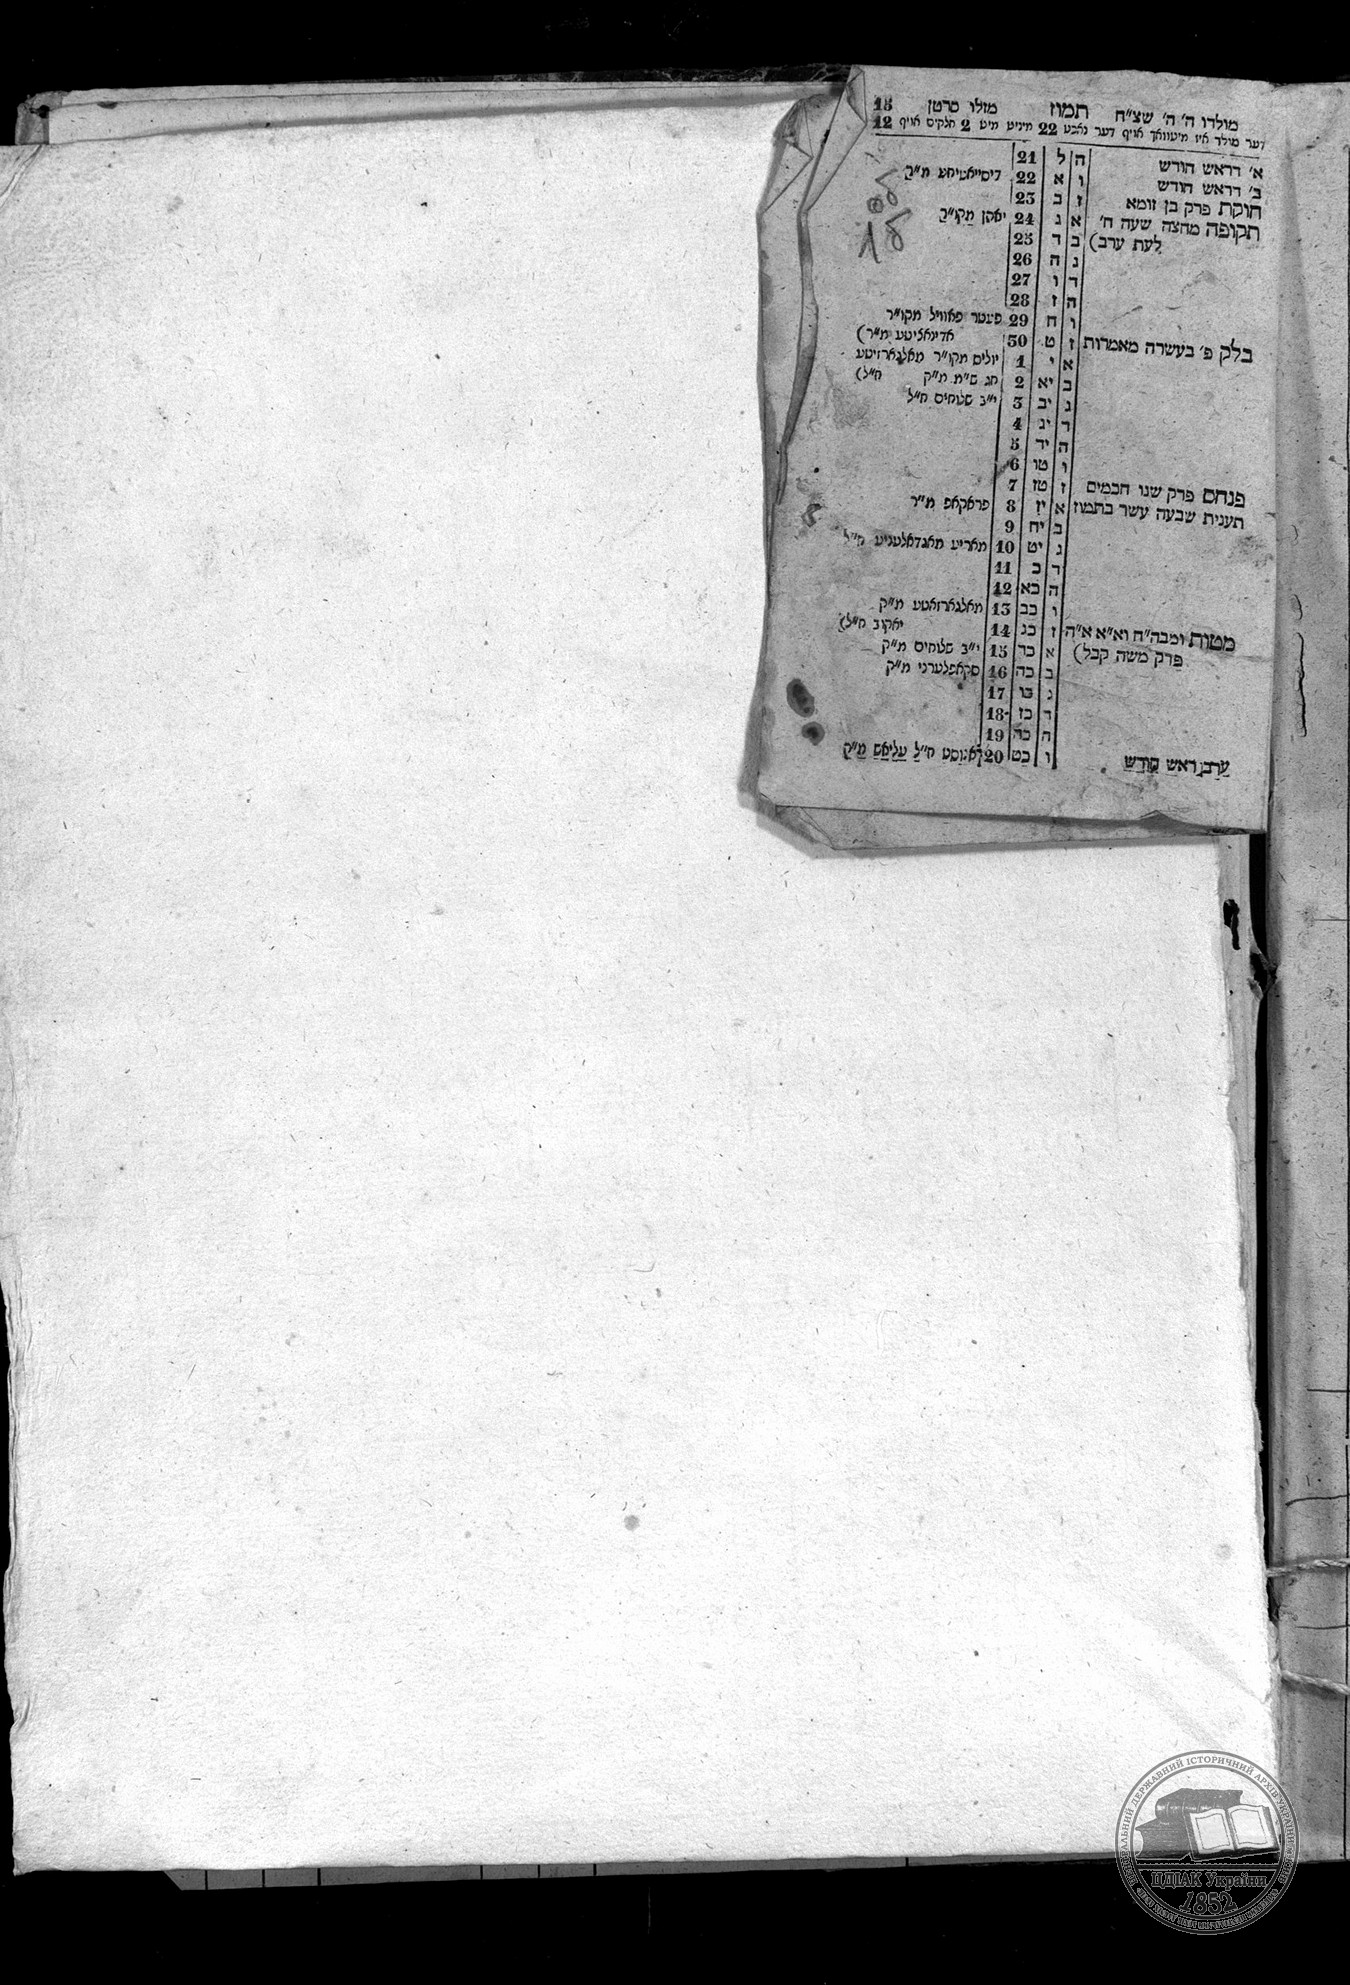 מולדו ה' ה' שצ"ח תמוז מזלו סרטן 15
דער מולד איז מיטוואך אויף דער נאכט 22 מיניט מיט 2 חלקים אויף 12
א' דראש חודש ה ל 21
ב' דראש חודש ו א 22
חוקת פרק בן זומא ז ב 23
תקופה מחצה שעה ח' א ג 24 יאהן מקו"ר
לעת ערב) ב ד 25
ג ה 26
ד ו 27
ה ז 28
ו ח 29 פעטר פאוויל מקו"ר
בלק פ' בעשרה מאמרות ז ט 30
א י 1 יולים מקו"ר
ב יא 2 חג
ג יב 3 י"ב שלוחים ח"ל
ד יג 4
ה יד 5
ו טו 6
פנחס פרק שנו חכמים ז טז 7
תענית שבעה עשר בתמוז א יז 8 פראקאפ מ"ר
ב יח 9
ג יט 10 מאריע מאגדאלעניע ח"ל
ד כ 11
ה כא 12
ו כב 13 מאלגארזאטע מ"ק
מטות ומבה"ח וא"א א"ה ז כג 14 יאקוב ח"ל)
פרק משה קבל) א כד 15 י"ב שלוחים מ"ק
ב כה 16 סקאפלערני מ"ק
ג כו 17
ד כז 18
ה כח 19
ערב ראש חודש ו כט 20 אגוסט ח"ל עליאש מ"ק
ЦЕНТРАЛЬНИЙ ДЕРЖАВНИЙ ІСТОРИЧНИЙ АРХІВ УКРАЇНИ
ЦДІАК України
1852